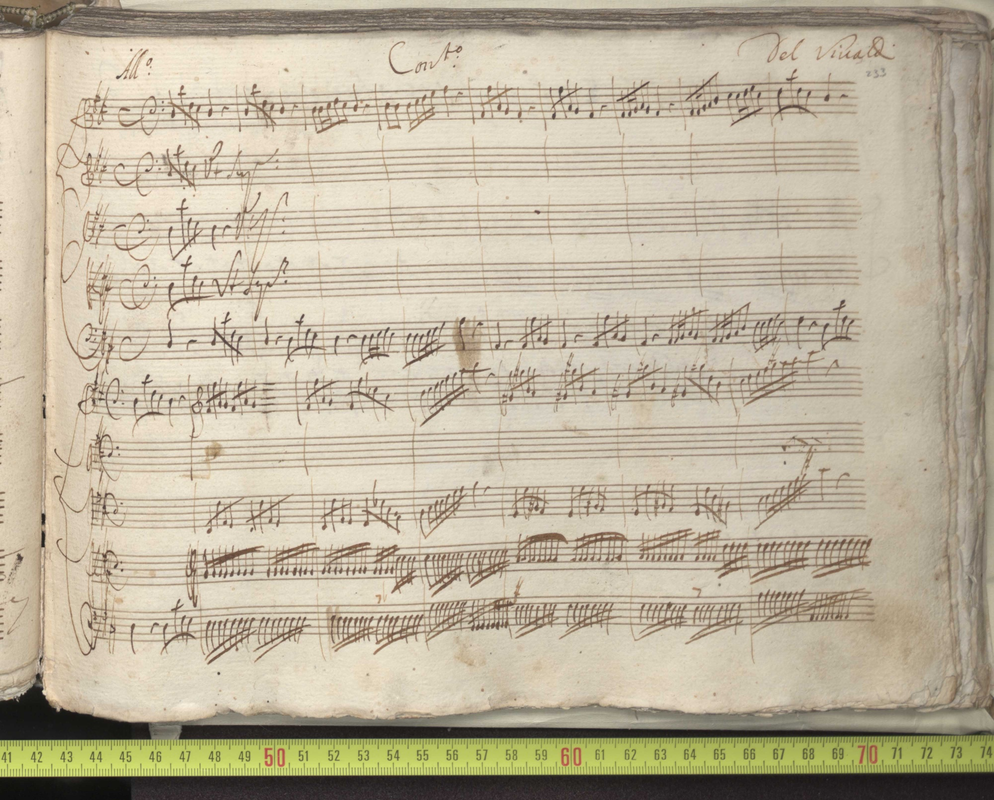 All.º Cont.º Del Vivaldi
233
Ut Sup.ª
Ut Sup.ª
41 42 43 44 45 46 47 48 49 50 51 52 53 54 55 56 57 58 59 60 61 62 63 64 65 66 67 68 69 70 71 72 73 74